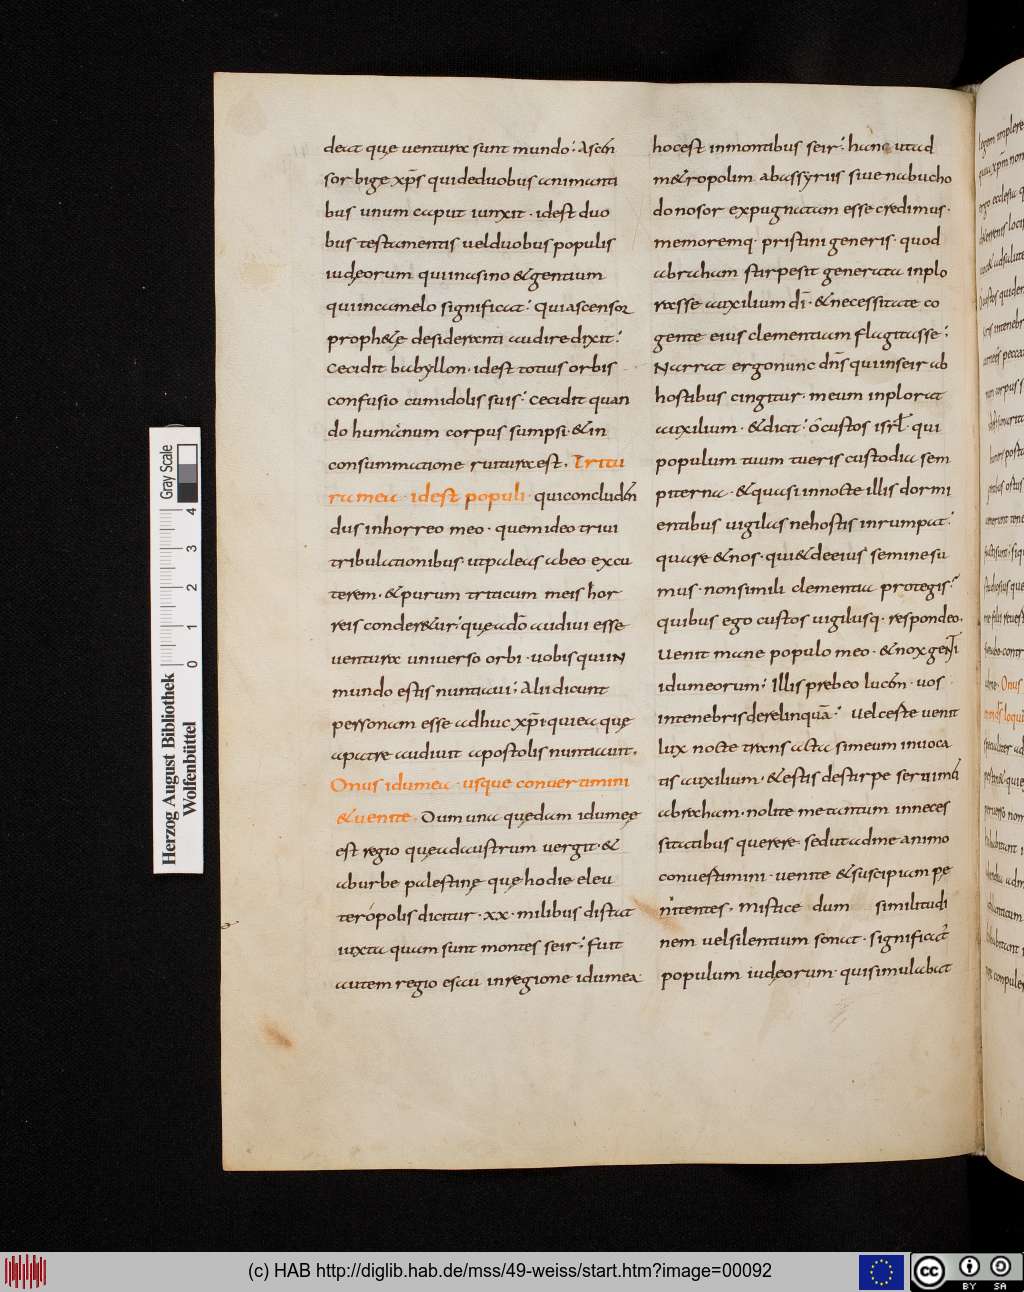 deat que uenturæ sunt mundo: Ascen
sor bige xp̄s quideduobus animanti
bus unum caput iunxit · idest duo
bus testamentis uelduobus populis
iudęorum quiinasino &gentium
quiincamelo significat: Quiascensor
proph&ę desideranti audire dixit:
Cecidit babyllon · idest totius orbis
confusio cumidolis suis: cecidit quan
do humanum corpus sumpsi · &in
consummatione ruituræ est. Tritu
ra mea · idest populi · quiconcluden
dus inhorreo meo · quemideo triui
tribulationibus · utpaleas abeo excu
terem · &purum triticum meis hor
reis conder&ur: quęadō audiui esse
uenturæ uniuerso orbi · uobis quiin
mundo estis nuntiaui; Alii dicunt
personam esse adhuc xp̄i quiea quę
apatre audiuit apostolis nuntiauit.
Onus idumea · usque conuertimini
&uenite. Dum una quędam idumeę
est regio quęadaustrum uergit · &
aburbe palestinę quę hodie eleu
terópolis dicitur · xx · milibus distat
iuxta quam sunt montes seir: fuit
autem regio esau inregione idumea
hocest inmontibus seir: hanc utad
m&ropolim abassyriis siue nabucho
donosor expugnatam esse credimus ·
memoremq · pristini generis · quod
abraham stirpesit generata inplo
rasse auxilium dī · &necessitate co
gente eius clementiam flagitasse:
Narrat ergonunc dn̄s quiinseir ab
hostibus cingitur · meum inplorat
auxilium · &dicit: ō custos isrł · qui
populum tuum tueris custodia sem
piterna · &quasi innocte illis dormi
entibus uigilas nehostis inrumpat:
quare &nos · qui&deeius semine su
mus · nonsimili clementia protegis:
quibus ego custos uigilusq · respondeo.
Uenit mane populo meo · &nox genti
idumeorum: Illis prebeo lucem · uos
intenebris derelinquā: Uelceste uenit
lux nocte transacta simeum inuoca
tis auxilium · &estis destirpe serui mei
abraham · nolite me tantum inneces
sitatibus querere sedutadme animo
conuestimini · uenite &suscipiam pe
nitentes. Mistice dum similitudi
nem uelsilentium sonat · significat
populum iudęorum · quisimulabat
Herzog August Bibliothek
Wolfenbüttel
Gray Scale
0 1 2 3 4
(c) HAB http://diglib.hab.de/mss/49-weiss/start.htm?image=00092
cc BY SA